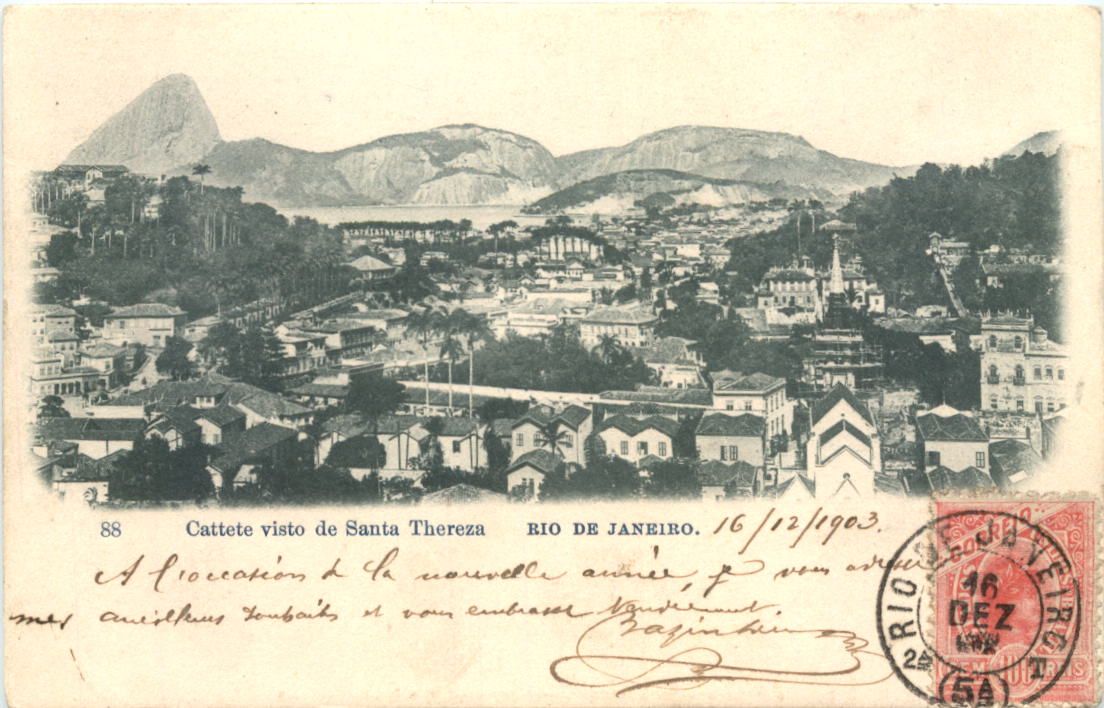 88 Cattete visto de Santa Thereza RIO DE JANEIRO. 16/12/1903.
A l'occasion de la nouvelle année, je vous adresse
mes meilleurs souhaits et vous embrasse tendrement.
RIO DE JANEIRO
16
DEZ
5A
CEM 100 RÉIS